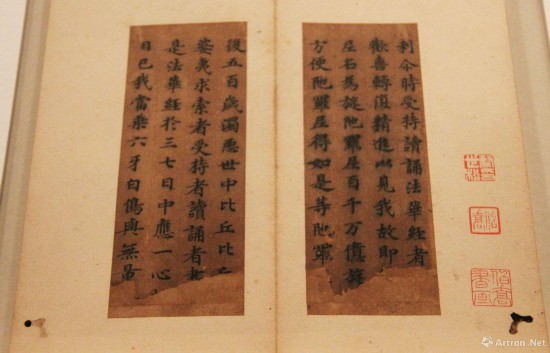 利尒時受持讀誦法華經者
歡喜轉復精進以見我故即
尼名為旋陁羅尼百千万億旋
方便陁羅尼得如是等陁羅
後五百歲濁惡世中比丘比
婆夷求索者受持者讀誦者
是法華經於三七日中應一心
日已我當乘六牙白象與無量
Artron.Net